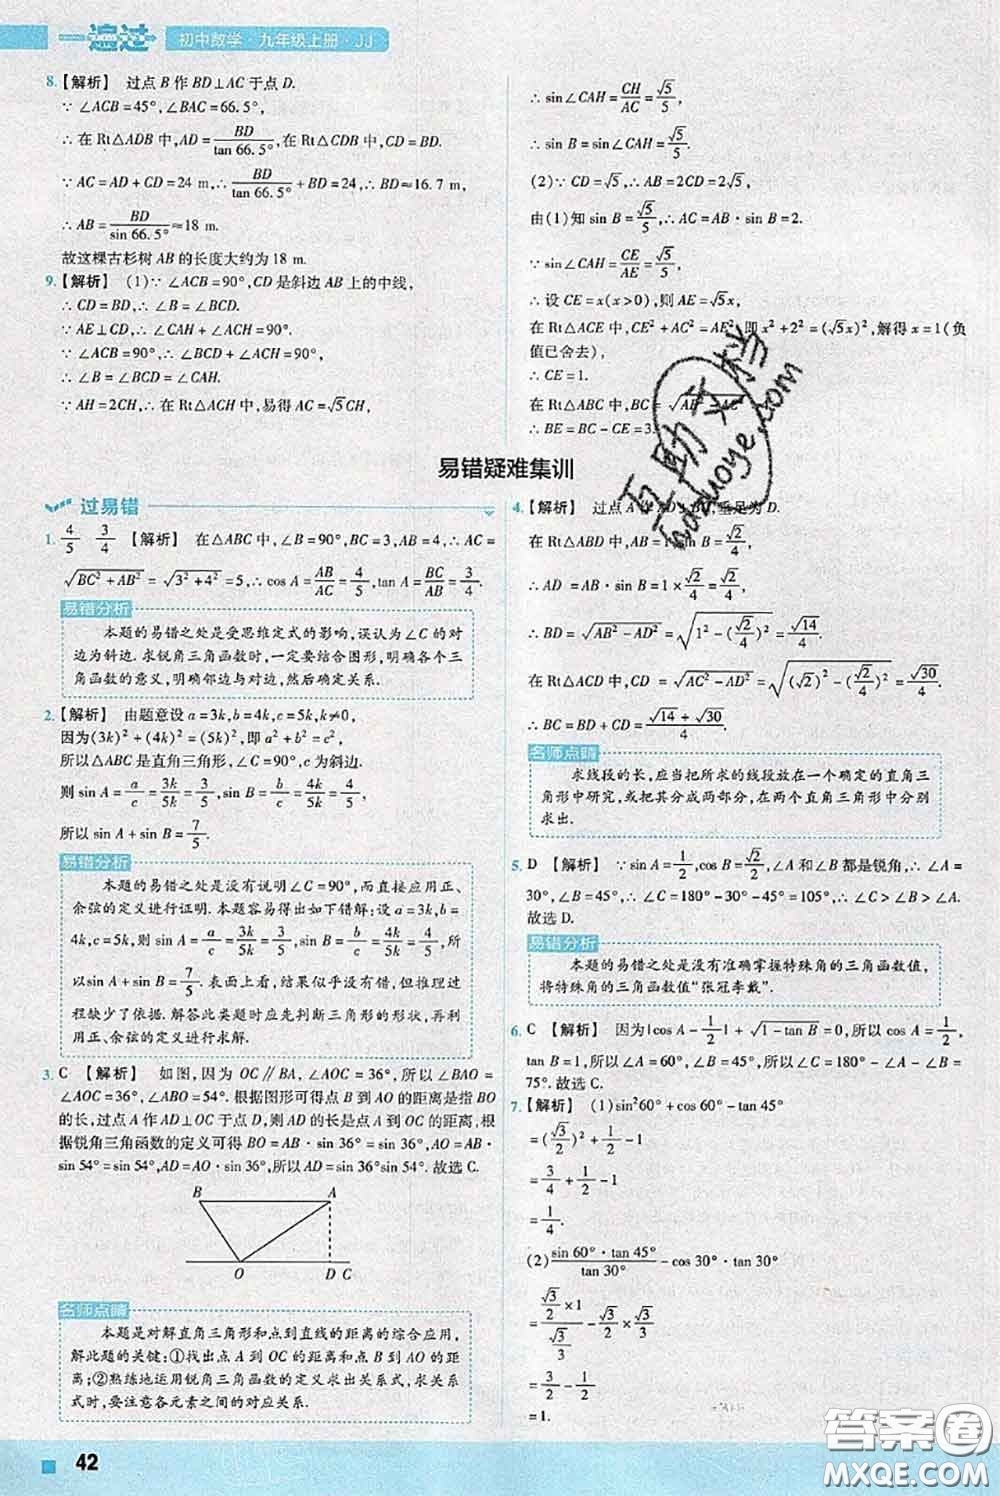 一遍过 初中数学·九年级上册·JJ
8.【解析】 过点 B 作 BD⊥AC 于点 D.
∵ ∠ACB=45°,∠BAC=66.5°,
∴ 在 Rt△ADB 中,AD=BD/tan 66.5°,在 Rt△CDB 中,CD=BD.
∵ AC=AD+CD=24 m,∴ BD/tan 66.5°+BD=24,∴ BD≈16.7 m,
∴ AB=BD/sin 66.5°≈18 m.
故这棵古杉树 AB 的长度大约为 18 m.
9.【解析】 (1)∵ ∠ACB=90°,CD是斜边 AB 上的中线,
∴ CD=BD,∴ ∠B=∠BCD.
∵ AE⊥CD,∴ ∠CAH+∠ACH=90°.
∵ ∠ACB=90°,∴ ∠BCD+∠ACH=90°,
∴ ∠B=∠BCD=∠CAH.
∵ AH=2CH,∴ 在 Rt△ACH 中,易得 AC=√5CH,
∴ sin∠CAH=CH/AC=√5/5,
∴ sin B=sin∠CAH=√5/5.
(2)∵ CD=√5,∴ AB=2CD=2√5,
由(1)知 sin B=√5/5,∴ AC=AB·sin B=2.
∵ sin∠CAH=CE/AE=√5/5,
∴ 设 CE=x(x>0),则 AE=√5x,
在 Rt△ACE 中,CE²+AC²=AE²,即 x²+2²=(√5x)²,解得 x=1(负
值已舍去),
∴ CE=1.
在 Rt△ABC 中,BC=
∴ BE=BC-CE=3.
易错疑难集训
过易错
1. 4/5 3/4 【解析】 在△ABC 中,∠B=90°,BC=3,AB=4,∴ AC=
√(BC²+AB²)=√(3²+4²)=5,∴ cos A=AB/AC=4/5,tan A=BC/AB=3/4.
易错分析
本题的易错之处是受思维定式的影响,误认为∠C 的对
边为斜边.求锐角三角函数时,一定要结合图形,明确各个三
角函数的意义,明确邻边与对边,然后确定关系.
2.【解析】 由题意设 a=3k,b=4k,c=5k,k≠0,
因为(3k)²+(4k)²=(5k)²,即 a²+b²=c²,
所以△ABC 是直角三角形,∠C=90°,c 为斜边.
则 sin A=a/c=3k/5k=3/5,sin B=b/c=4k/5k=4/5,
所以 sin A+sin B=7/5.
易错分析
本题的易错之处是没有说明∠C=90°,而直接应用正、
余弦的定义进行证明.本题容易得出如下错解:设 a=3k,b=
4k,c=5k,则 sin A=a/c=3k/5k=3/5,sin B=b/c=4k/5k=4/5,所
以sin A+sin B=7/5.表面上看,结果似乎没有错,但推理过
程缺少了依据.解答此类题时应先判断三角形的形状,再利
用正、余弦的定义进行求解.
3. C 【解析】 如图,因为 OC∥BA,∠AOC=36°,所以∠BAO=
∠AOC=36°,∠AOB=54°.根据图形可得点 B 到 AO 的距离是指 BO
的长,过点 A 作 AD⊥OC 于点 D,则 AD 的长是点 A 到 OC 的距离,根
据锐角三角函数的定义可得 BO=AB·sin 36°=sin 36°,AO=AB·
sin 54°=sin 54°,AD=AO·sin 36°,所以AD=sin 36°sin 54°.故选 C.
B A
O D C
名师点睛
本题是对解直角三角形和点到直线的距离的综合应用,
解此题的关键:①找出点 A 到 OC 的距离和点 B 到 AO 的距
离;②熟练地运用锐角三角函数的定义求出关系式,求关系
式时,要注意各元素之间的对应关系.
4.【解析】 过点 A 作 AD⊥BC,垂足为 D.
在 Rt△ABD 中,AB=1,sin B=√2/4,
∴ AD=AB·sin B=1×√2/4=√2/4,
∴ BD=√(AB²-AD²)=√(1²-(√2/4)²)=√14/4.
在 Rt△ACD 中,CD=√(AC²-AD²)=√((√2)²-(√2/4)²)=√30/4,
∴ BC=BD+CD=(√14+√30)/4.
名师点睛
求线段的长,应当把所求的线段放在一个确定的直角三
角形中研究,或把其分成两部分,在两个直角三角形中分别
求出.
5. D 【解析】 ∵ sin A=1/2,cos B=√2/2,∠A 和∠B 都是锐角,∴ ∠A=
30°,∠B=45°,∴ ∠C=180°-30°-45°=105°,∴ ∠C>∠B>∠A.
故选 D.
易错分析
本题的易错之处是没有准确掌握特殊角的三角函数值,
将特殊角的三角函数值“张冠李戴”.
6. C 【解析】 因为|cos A-1/2|+√(1-tan B)=0,所以 cos A=1/2,
tan B=1,所以∠A=60°,∠B=45°,所以∠C=180°-∠A-∠B=
75°.故选 C.
7.【解析】 (1)sin²60°+cos 60°-tan 45°
=(√3/2)²+1/2-1
=3/4+1/2-1
=1/4.
(2)(sin 60°·tan 45°)/tan 30°-cos 30°·tan 30°
=(√3/2×1)/(√3/3)-√3/2×√3/3
=3/2-1/2
=1.
42
答案圈
MXQE.COM